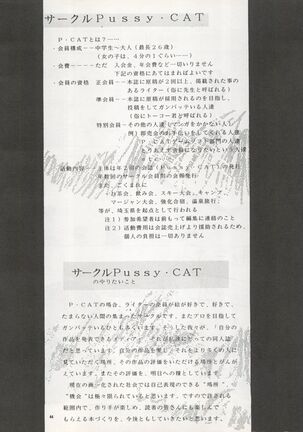 サークルPussy・CAT
P・CATとは？……
・会員構成――中学生～大人（最長２６歳）
（女の子は、４分の１ぐらい）
・会費――――ただ　入会金、年会費など一切いりません
下記の資格さえあてはまればＯＫです
・会員の資格　正会員――本誌に原稿が２回以上、掲載された事の
あるライター（俗に先生と呼ばれる）
準会員――本誌に原稿が採用されるのを目指し、
投稿をしてガンバッテいる人達
（俗にトーコー君と呼ばれる）
特別会員――その他の人達（マンガをかかない人）
例）即売会のお手伝いをしてくれる人達
P・CATゲームソフト部門の人達
とりあえず会員になりたいという人達
活動内容――主体は年２回の会誌（Pussy・CAT）の発行
年数回のサークル会員別の会報発行
また、ごくまれに
お茶会、飲み会、スキー大会、キャンプ、
マージャン大会、強化合宿、温泉旅行、
等が、埼玉県を起点として行われる
注１）参加希望者は前もって編集に連絡のこと
注２）活動費用は会誌売上より援助されるため、
個人の負担は一切ありません
サークルPussy・CAT
のやりたいこと
P・CATの場合、ライターの会員が絵が好きで、好きで、
たまらない人間の集まったサークルです。またプロを目指して
ガンバッテいるひともまじっています。そうした我々が、「自分の
作品を発表できる場所」、それが私達にとっての同人誌
だと思っています。自分の作品を愛し、それをより多くの人に
見ていただく場所、その作品に対して、評価されるものだと
思います。またその評価を、明日への糧として、
これからも頑張っていきたいと思っています。
現在の商一化された社会では自己表現のできる“場所”、
“機会”は極々限られていると思います。ですので許される
範囲内で、作り手が楽しめ、読者の皆さんにも楽しんで
もらえる本づくりを、今後ともしていきたいと思います。
44